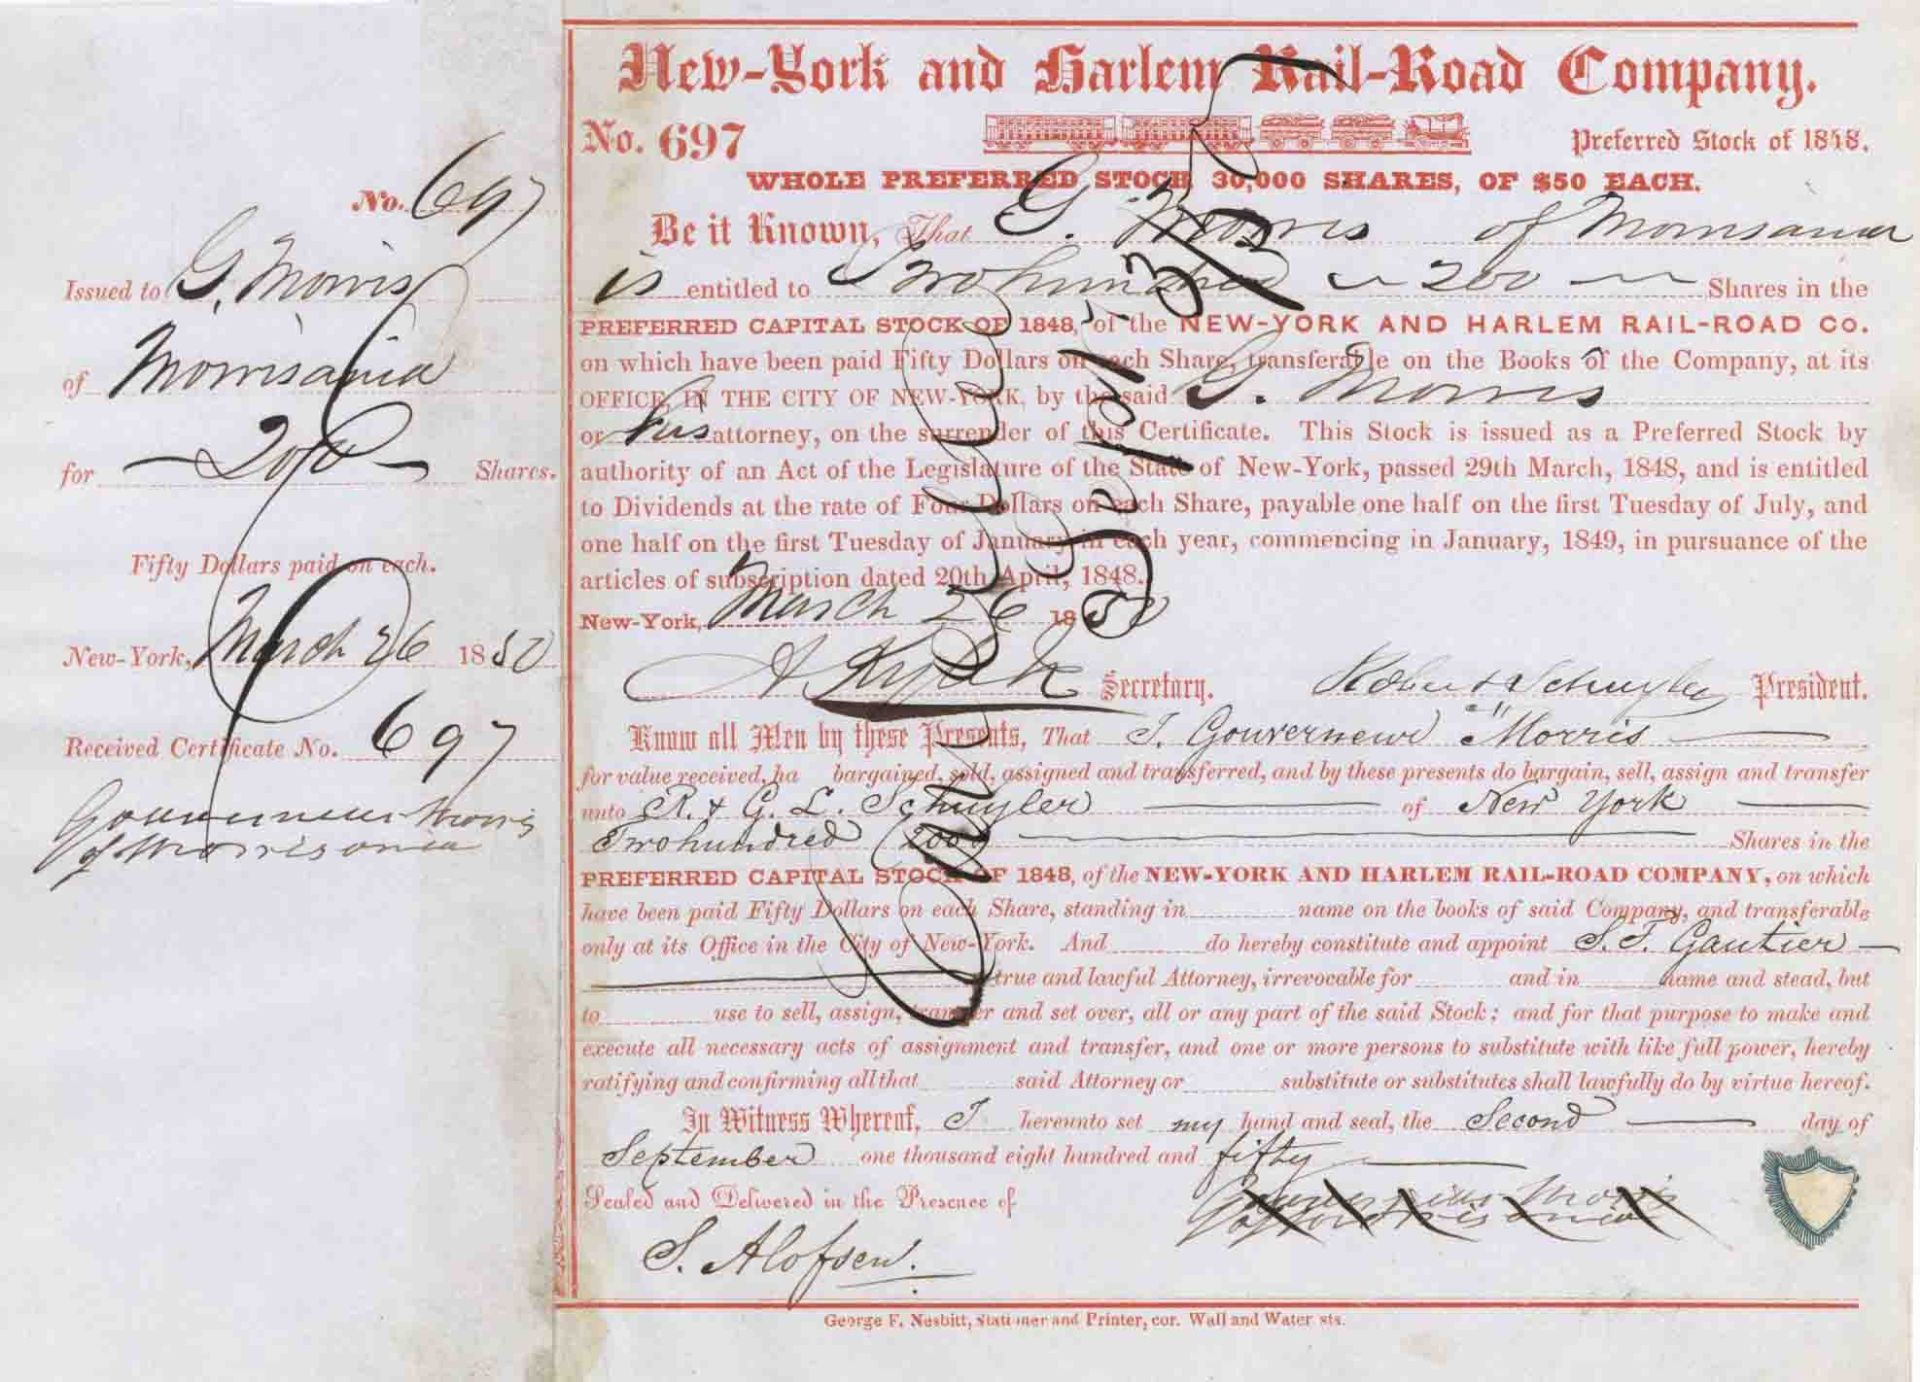 No. 697
Issued to G. Morris
of Morrisania
for 200 Shares.
Fifty Dollars paid on each.
New-York, March 26 1850
Received Certificate No. 697
Gouverneur Morris
of Morrisania
New-York and Harlem Rail-Road Company.
No. 697
Preferred Stock of 1848.
WHOLE PREFERRED STOCK 30,000 SHARES, OF $50 EACH.
Be it Known, That G. Morris of Morrisania
is entitled to Two hundred 200 Shares in the
PREFERRED CAPITAL STOCK OF 1848, of the NEW-YORK AND HARLEM RAIL-ROAD CO.
on which have been paid Fifty Dollars on each Share, transferable on the Books of the Company, at its
OFFICE, IN THE CITY OF NEW-YORK, by the said G. Morris
or his attorney, on the surrender of this Certificate. This Stock is issued as a Preferred Stock by
authority of an Act of the Legislature of the State of New-York, passed 29th March, 1848, and is entitled
to Dividends at the rate of Four Dollars on each Share, payable one half on the first Tuesday of July, and
one half on the first Tuesday of January in each year, commencing in January, 1849, in pursuance of the
articles of subscription dated 20th April, 1848.
New-York, March 26 1850
Secretary. Robert Schuyler President.
Cancelled
Know all Men by these Presents, That I Gouverneur Morris
for value received, ha bargained, sold, assigned and transferred, and by these presents do bargain, sell, assign and transfer
unto R. & G. L. Schuyler of New York
Two hundred (200) Shares in the
PREFERRED CAPITAL STOCK OF 1848, of the NEW-YORK AND HARLEM RAIL-ROAD COMPANY, on which
have been paid Fifty Dollars on each Share, standing in name on the books of said Company, and transferable
only at its Office in the City of New-York. And do hereby constitute and appoint S. T. Gautier
true and lawful Attorney, irrevocable for and in name and stead, but
to use to sell, assign, transfer and set over, all or any part of the said Stock; and for that purpose to make and
execute all necessary acts of assignment and transfer, and one or more persons to substitute with like full power, hereby
ratifying and confirming all that said Attorney or substitute or substitutes shall lawfully do by virtue hereof.
In Witness Whereof, I hereunto set my hand and seal, the Second day of
September one thousand eight hundred and fifty
Sealed and Delivered in the Presence of
Gouverneur Morris
of Morrisania
S. Alofsen.
George F. Nesbitt, Stationer and Printer, cor. Wall and Water sts.